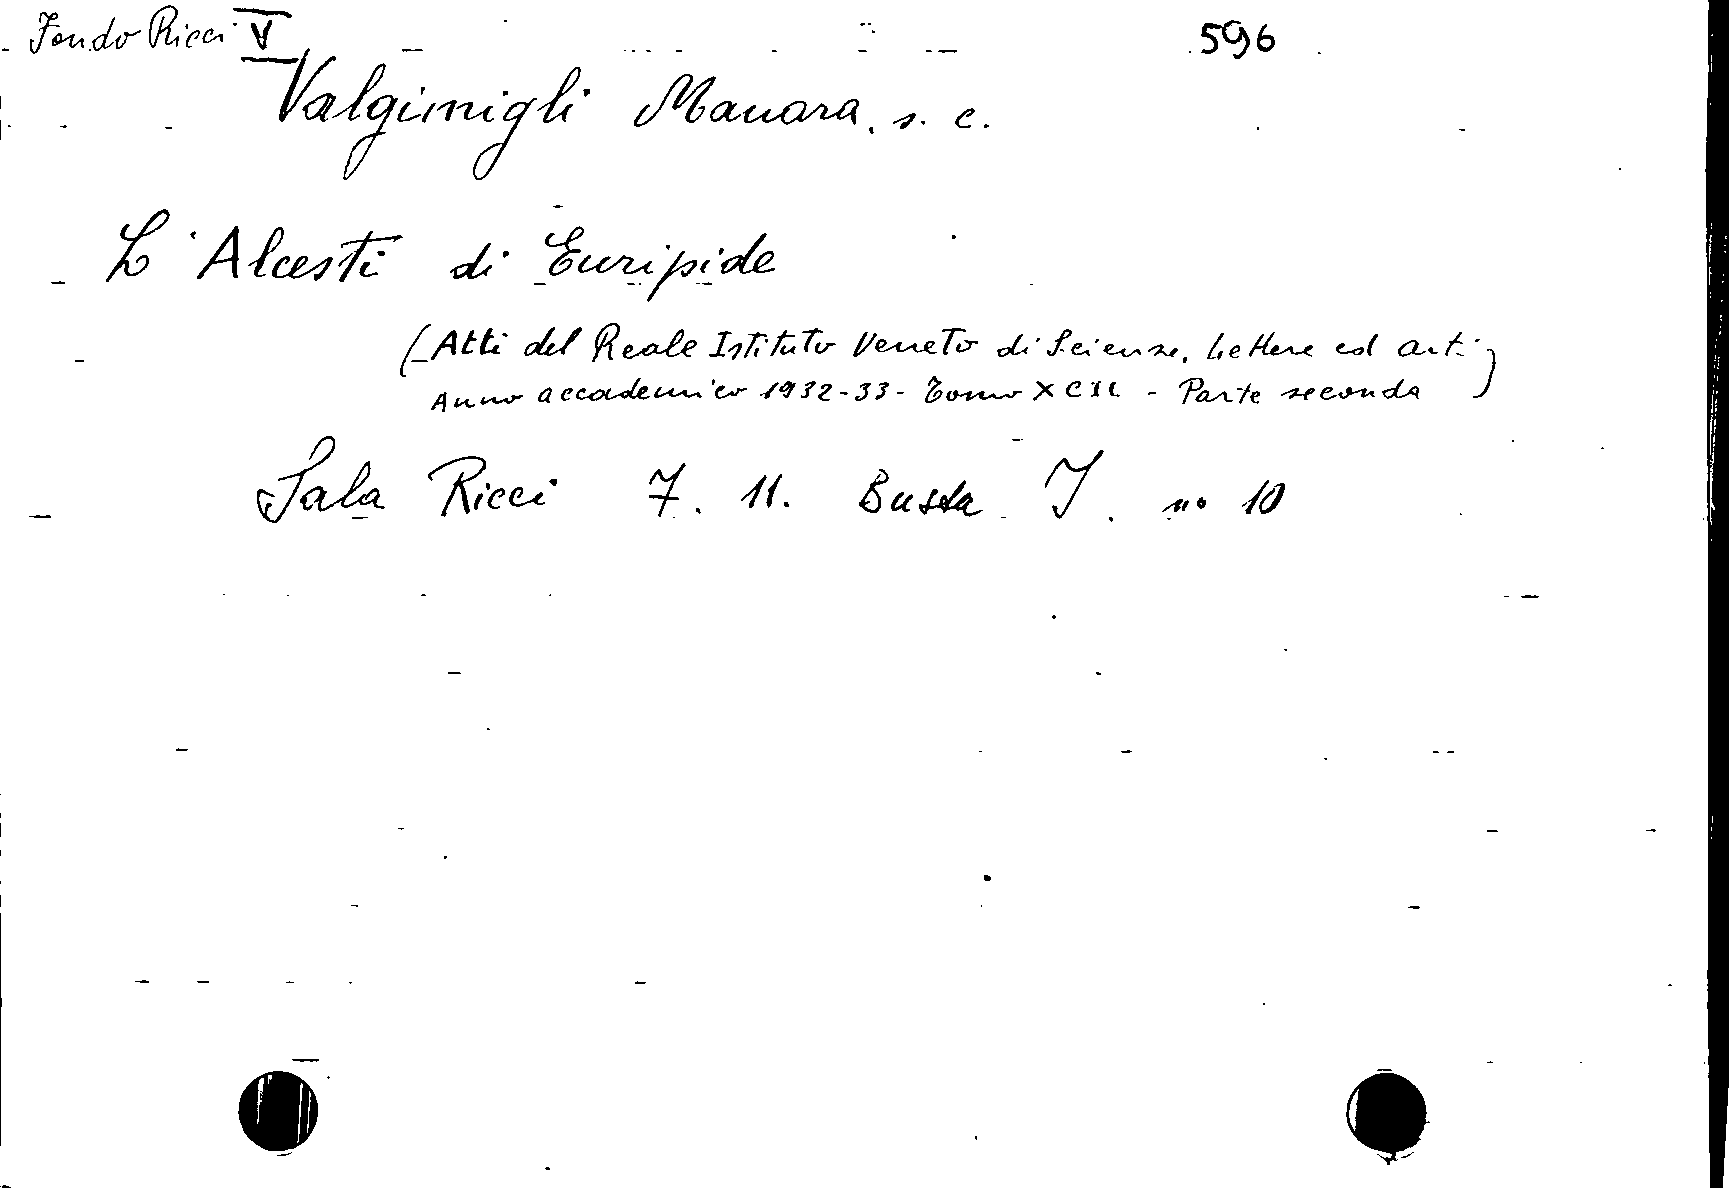 Fondo Ricci V 596
Valgimigli Manara, s. c.
L'Alcesti di Euripide
(Atti del Reale Istituto Veneto di Scienze, Lettere ed arti
Anno accademico 1932-33 - Tomo XCII - Parte seconda)
Sala Ricci 7. 11. Busta I. n° 10